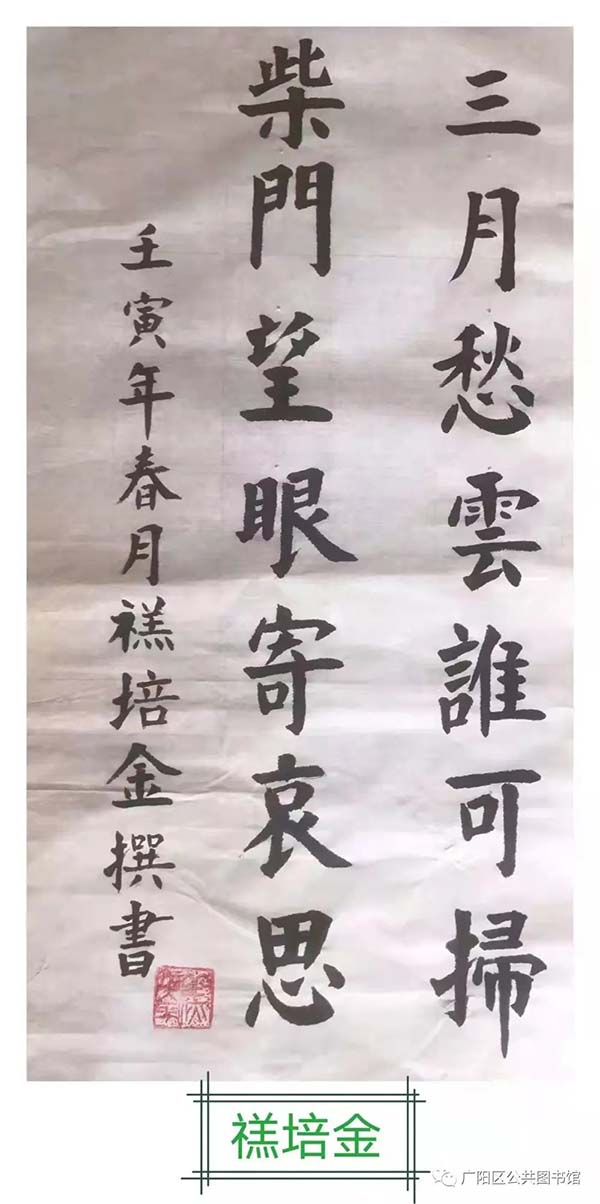 三月愁雲誰可掃
柴門望眼寄哀思
壬寅年春月禚培金撰書
禚培金
广阳区公共图书馆